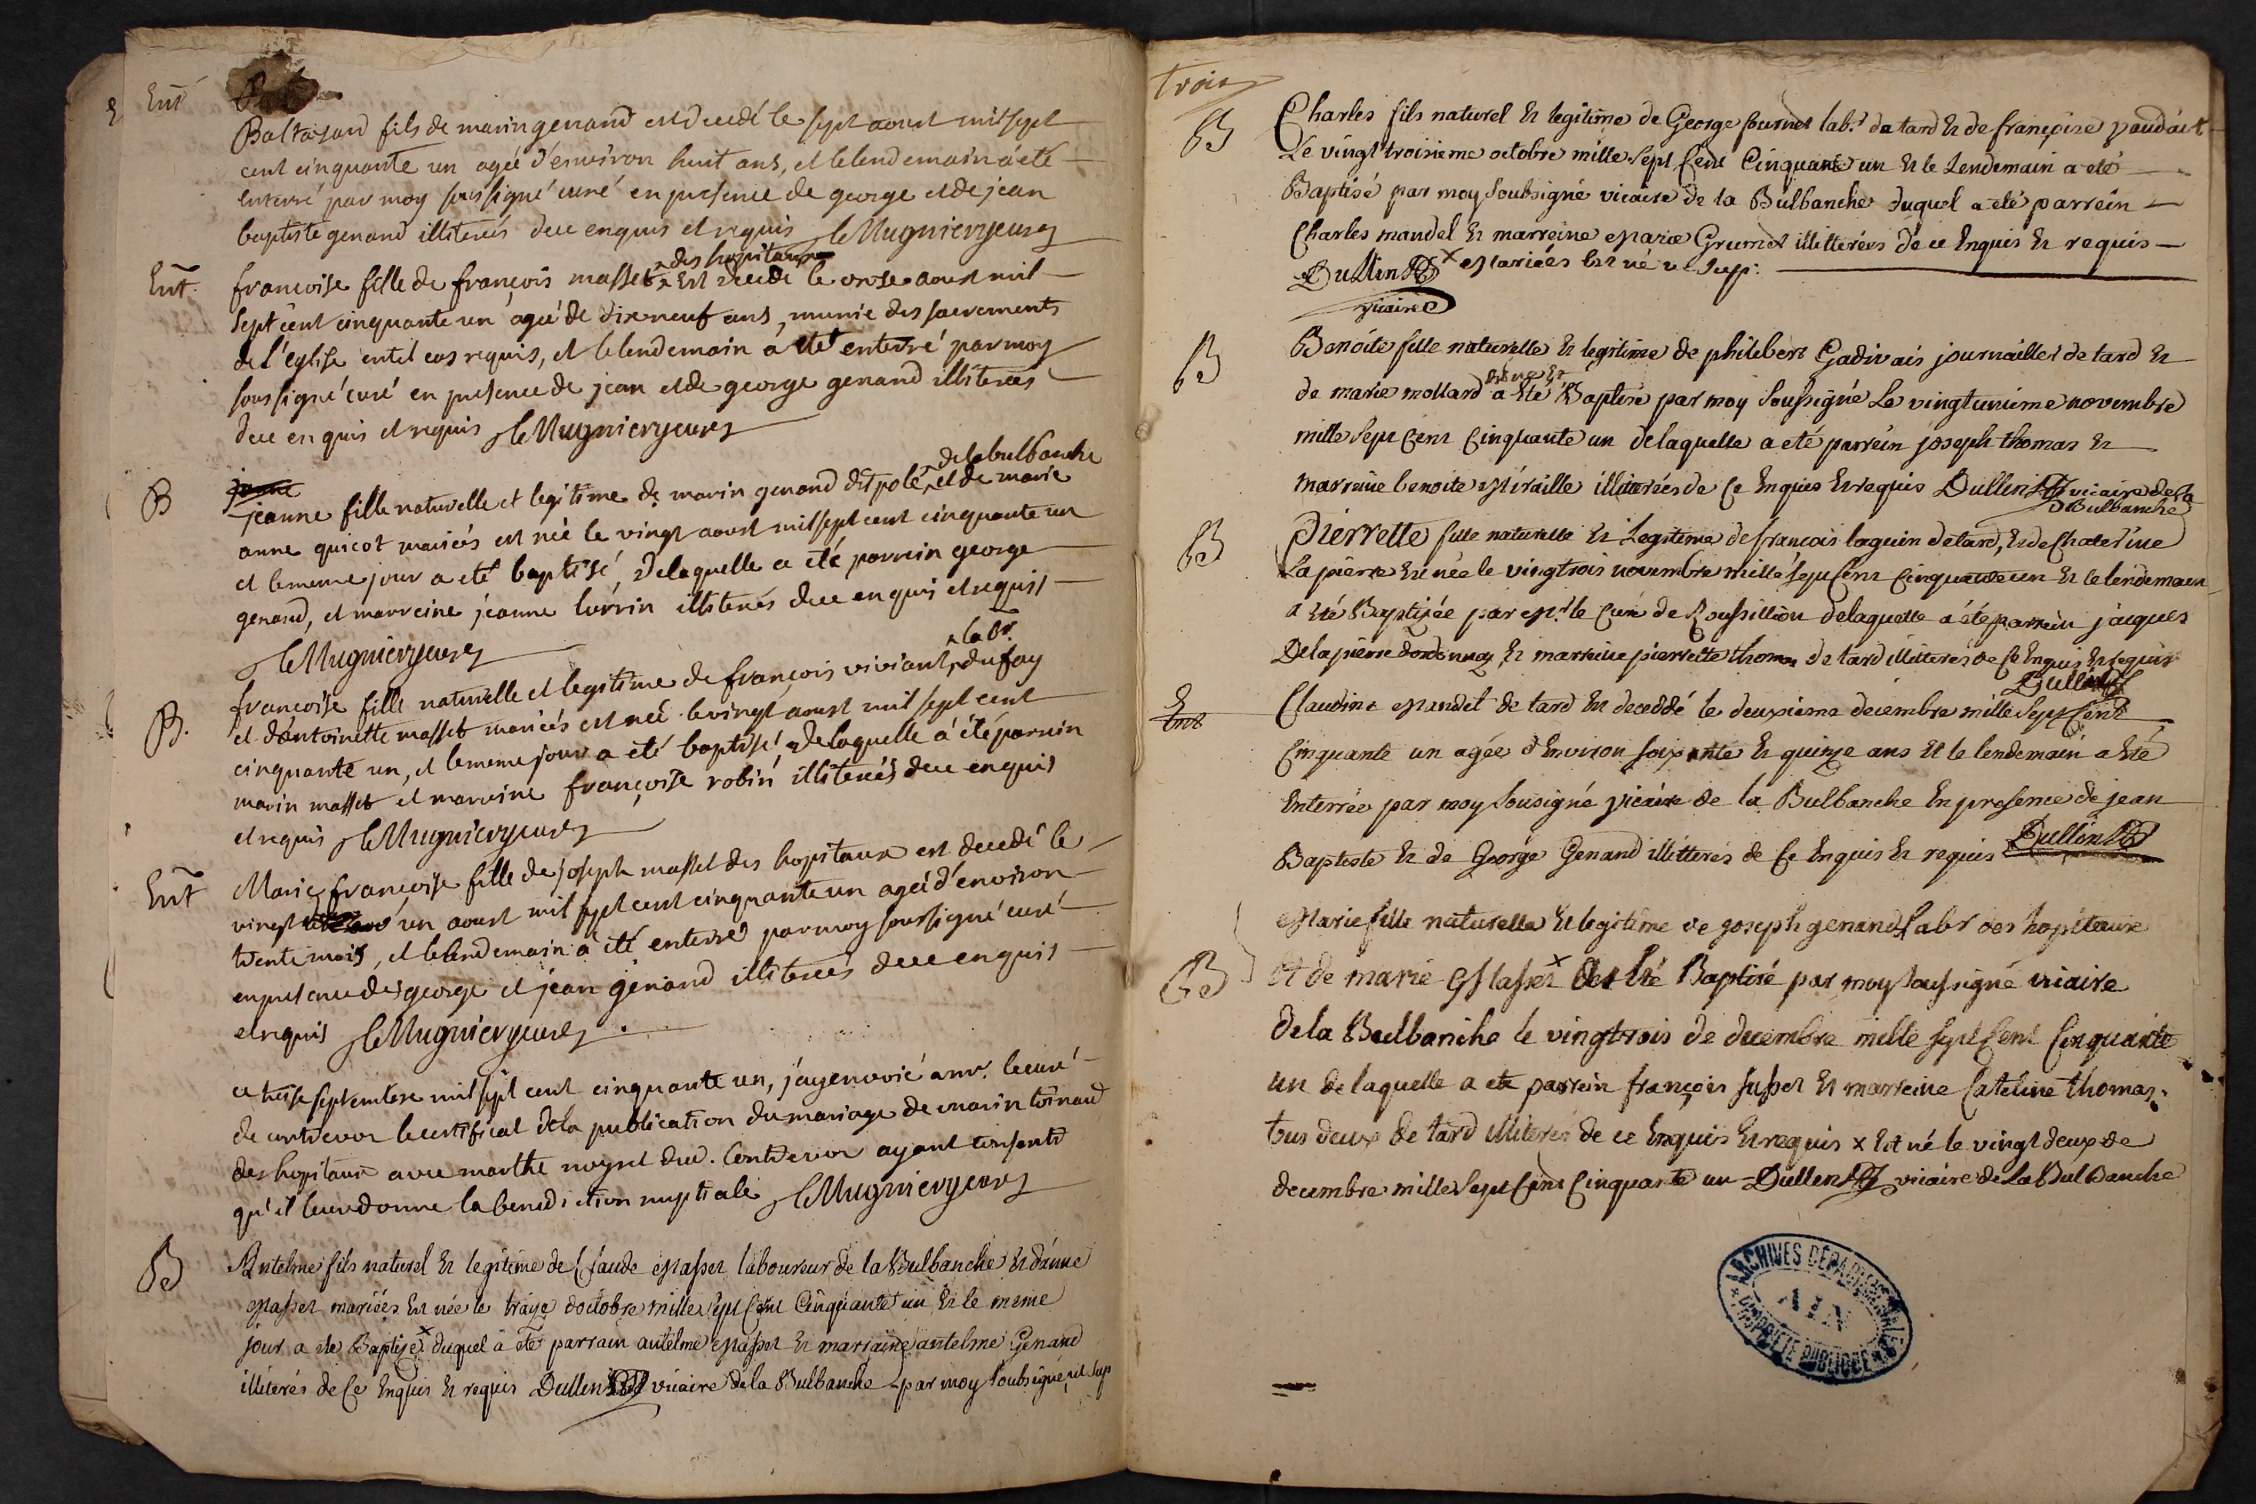 Ent
Baltazard fils de marin genand est decedé le sept aoust mil sept
cent cinquante un agée d'environ huit ans, et le lendemain a été
enterré par moy soussigné curé en presence de george et de jean
baptiste genand illiterés de ce enquis et requis LeMugnier curé
Ent. francoise fille de françois masset des hopitaux est decedé le onse aoust mil
sept cent cinquante un agée de dix neuf ans, munie des sacrements
de l'eglise en tel cas requis, et le lendemain a été enterré par moy
soussigné curé en presence de jean et de george genand illiterés
de ce enquis et requis LeMugnier curé
B jeanne
jeanne fille naturelle et legitime de marin genand dit polé de la bulbanche et de marie
anne quicot mariés est née le vingt aoust mil sept cent cinquante un
et le meme jour a été baptisé, de laquelle a été parrein george
genand, et marreine jeanne lurrin illiterés de ce enquis et requis
LeMugnier curé
B. francoise fille naturelle et legitime de françois viviant labr. du fay
et d'antoinette masset mariés est née le vingt aoust mil sept cent
cinquante un, et le meme jour a été baptisé de laquelle a été parrein
marin masset et marreine françoise robin illiterés de ce enquis
et requis LeMugnier curé
Ent Marie francoise fille de joseph masset des hopitaux est decedé le
vingt un aoust mil sept cent cinquante un agée d'environ
trente mois, et le lendemain a été enterré par moy soussigné curé
en presence de george et jean genand illiterés de ce enquis
et requis LeMugnier curé
ce treise septembre mil sept cent cinquante un, j'ay envoié a mr. le curé
de contrevoz le certificat de la publication du mariage de marin
des hopitaux avec marthe de contrevoz ayant consenti
qu'il leur donne la benediction nuptiale LeMugnier curé
B Antelme fils naturel et legitime de Claude Masset laboureur de la Bulbanche et d'anne
Masset mariées est née le traize d'octobre mille sept Cent Cinquante un et le meme
jour a ete Baptisé x duquel a été parrain antelme Masset et marraine antelme Genand
illiterés de Ce Enquis et requis Dullin vicaire de la Bulbanche par moy soubsigné ut sup
trois
B Charles fils naturel et legitime de George fournet lab.r de tard et de françoise
Le vingt troisieme octobre mille sept Cent Cinquante un et le Lendemain a eté
Baptisé par moy soubsigné vicaire de la Bulbanche duquel a eté parrein
Charles mandel et marreine Marie Grumet illitterérs de ce Enquis et requis
Dullin x Mariées est né ut sup:
vicaire
B Benoite fille naturelle et legitime de philibert Gadivais journaillier de tard et
de marie mollard est nee et a été Baptisé par moy soussigné Le vingtunieme novembre
mille sept Cent Cinquante un de laquelle a eté parrein joseph thomas et
marreine benoite Miraille illiterées de Ce Enquies et requis Dullin vicaire de la
Bulbanche
B Pierrette fille naturelle et Legitime de francois loquin de tard, et de Chaterine
Lapierre est née le vingtrois novembre mille sept Cent Cinquante un et le lendemain
a été Baptisée par Mr. le Curé de Roussillion de laquelle a été parrein jacques
Delapierre d'ordonnaz et marreine pierrette thomas de tard illitteres de Ce Enquis et requis
Dullin
Ent Claudine Mandel de tard est deceddé le deuxieme decembre mille sept Cent
Cinquante un agée d'Environ soixante et quinze ans et le lendemain a été
Enterrée par moy sousigné vicaire de la Bulbanche En presence de jean
Baptiste et de George Genand illitterés de Ce Enquis et requis Dullin
B Marie fille naturelle et legitime de joseph genand labr des hopiteaux
et de marie Masset x a été Baptisé par moy soussigné vicaire
de la Bulbanche le vingtrois de decembre mille sept Cent Cinquante
un de laquelle a eté parrein françois et marreine Cateline thomas
tus deux de tard illiterés de ce Enquis et requis x est né le vingt deux de
decembre mille sept Cent Cinquante un Dullin vicaire de La Bulbanche
ARCHIVES DÉPARTEMENTALES
AIN
PROPRIÉTÉ PUBLIQUE